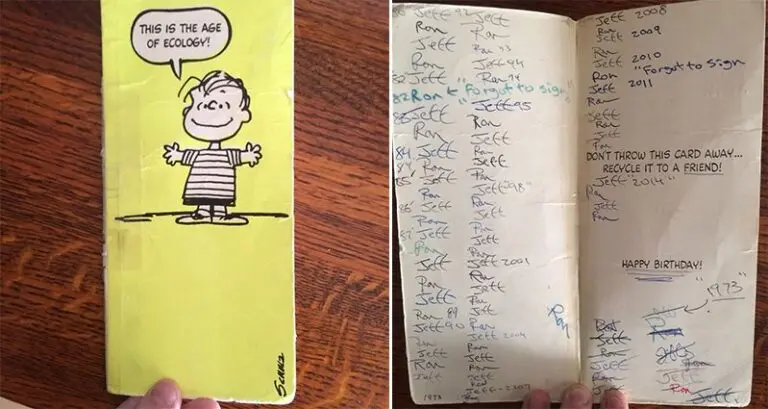 THIS IS THE AGE
OF ECOLOGY!
SCHULZ
Jeff 92 Jeff
Ron Ron
Jeff Ron 93
Ron Jeff 94
82 Jeff Ron 94
82 Ron ← "Forgot to sign"
Jeff 95
83 Jeff Ron
Ron Jeff
Jeff Ron
84 Jeff Jeff
84 Ron
85 Jeff Ron
Ron Jeff "98"
86 Jeff Ron
Ron Jeff
87 Jeff Ron
Ron Jeff
Ron
Jeff Jeff 2001
Ron Ron
Jeff Jeff
Ron 89 Ron
Jeff 90 Ron
Jeff 2004
Ron Jeff
Ron Ron
Jeff Jeff
Ron
Jeff 2007
1973 Ron
Ron
Jeff 2008
Ron
Jeff 2009
Ron
Jeff 2010
Ron "Forgot to Sign"
Jeff 2011
Ron
Jeff
Ron
Jeff
Ron
DON'T THROW THIS CARD AWAY...
RECYCLE IT TO A FRIEND!
Jeff "2014"
Ron
Jeff
Ron
HAPPY BIRTHDAY!
"1973"
Jeff
Ron
Jeff
Ron
Jeff
Ron
Jeff
Ron
Jeff